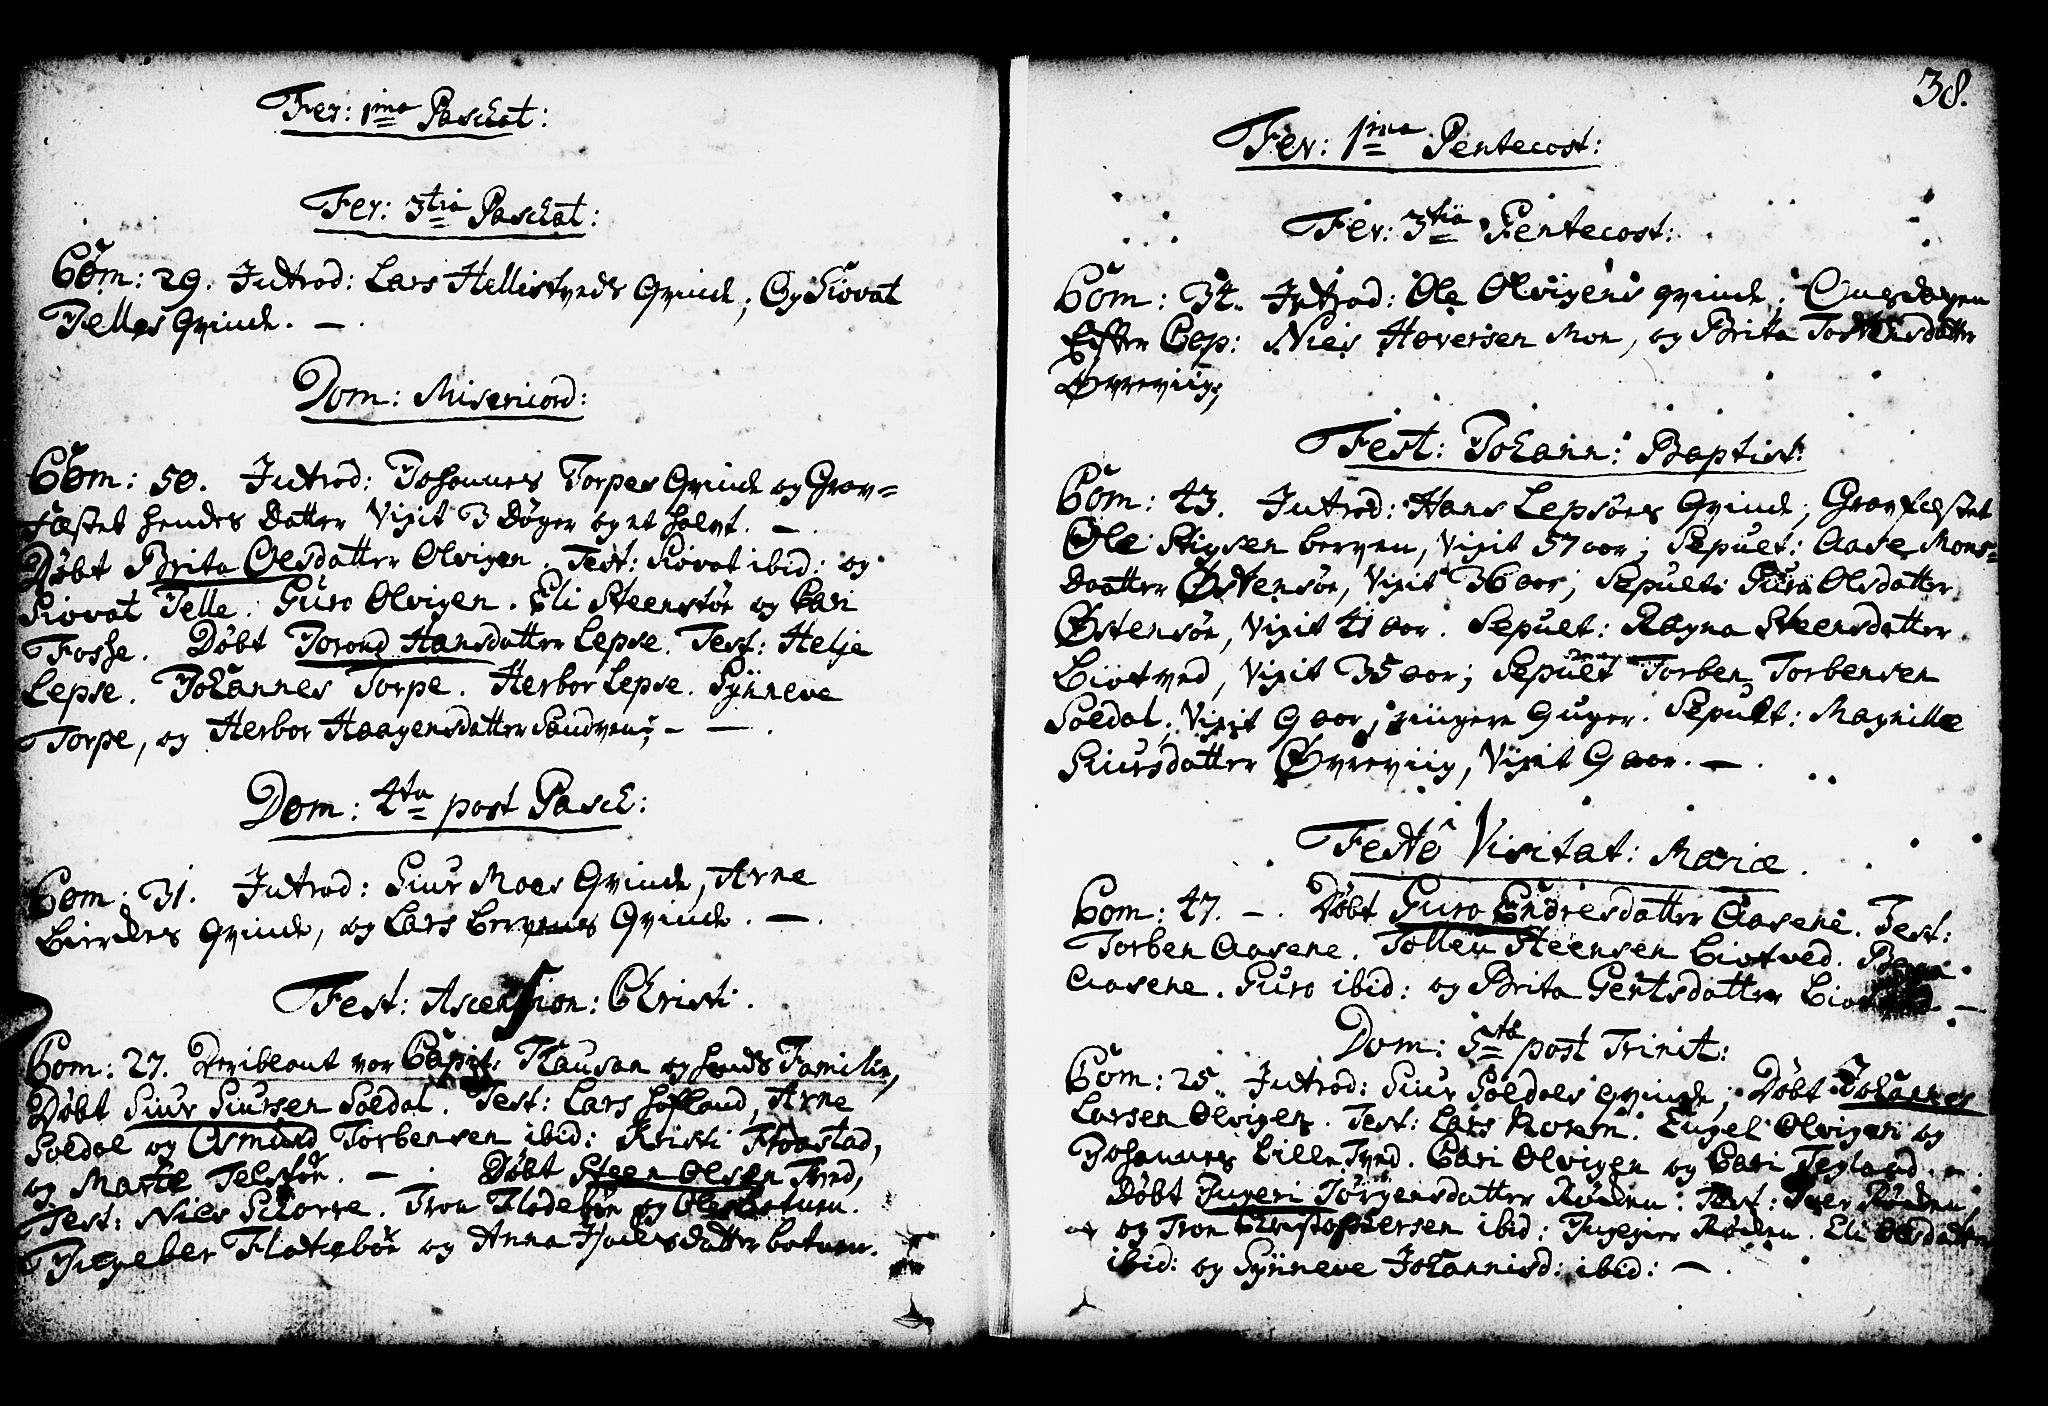 Fer: 1ma Paschat:
Fer: 3tia Paschat:
Com: 29. Introd: Lars Hellistveds Qvinde; Og Siovat
Jelles Qvinde. —.
Dom: Misericord:
Com: 50. Introd: Johannes Torpes Qvinde og Grav=
fæstet hendes Datter Vixit 3 Døger og et halvt. —.
Døbt Brita Olsdatter Olvigen. Test: Siovat ibid: og
Siovat Jelle. Guro Olvigen. Eli Steenstøe og Cari
Fosse. Døbt Jorond Hansdatter Lepse. Test: Helje
Lepse. Johannes Torpe. Herbor Lepse. Synneve
Torpe, og Herbor Haagensdatter Sandven; — — .
Dom: 4ta post Pasch:
Com: 31. Introd: Siur Moes Qvinde, Arne
Bierches Qvinde, og Lars Bervens Qvinde. —.
Fest: Ascension: Christi.
Com: 27. Deriblant var Capit: Clausan og hands Familie,
Døbt Siur Siursen Soldal. Test: Lars Hofland, Arne
Soldal og Osmund Torbensen ibid: Kristi Floastad,
og Marte Telstøe. — . Døbt Steen Olsen Tved,
Test: Niels Skorre. Tron Flodebøe og Ole Botnen.
Ingeber Flatebøe og Anna datter botnen.
38.
Fer: 1ma Pentecost:
Fer: 3tia Pentecost:
Com: 34. Introd: Ole Olvigens qvinde; Onsdagen
Efter Cop: Niels Haversen Moe, og Brita Torstensdatter
Øvreviig;
Fest: Johann: Baptist:
Com: 43. Introd: Hans Lepsøes Qvinde; Gravfæstet
Ole Stigsen Berven, Vixit 57 aar; Sepult: Aase Mons=
Daatter Østensøe, Vixit 36 aar; Sepult: Guro Olsdatter
Østensøe, Vixit 41 aar. Sepult: Ragna Steensdatter
Liotved, Vixit 35 aar; Sepult Torben Torbensen
Soldal. Vixit 9 aar, ringere 9 uger. Sepult: Magnille
Siursdatter Øvreviig, Vixit 9 aar. —.
Festô Visitat: Mariæ.
Com: 47. —. Døbt Guro Endresdatter Aasene. Test:
Torben Aasene. Tollev Steensen Liotved.
Aasene. Guro ibid: og Brita Gertsdatter —.
Dom: 5te post Trinit:
Com: 25. Introd: Siur Soldals qvinde; Døbt Johannes
Larsen Olvigen. Test: Lars Engel Olvigen og
Johannes Lille Tved. Cari Olvigen og Cari Tegland. —.
Døbt Ingeri Jørgensdatter Røenen: Test: Iver Røenen,
og Tron Christophersen ibid: Ingegier Røenen. Eli Olsdatter
ibid: og Synneve Johannisd: ibid: —.